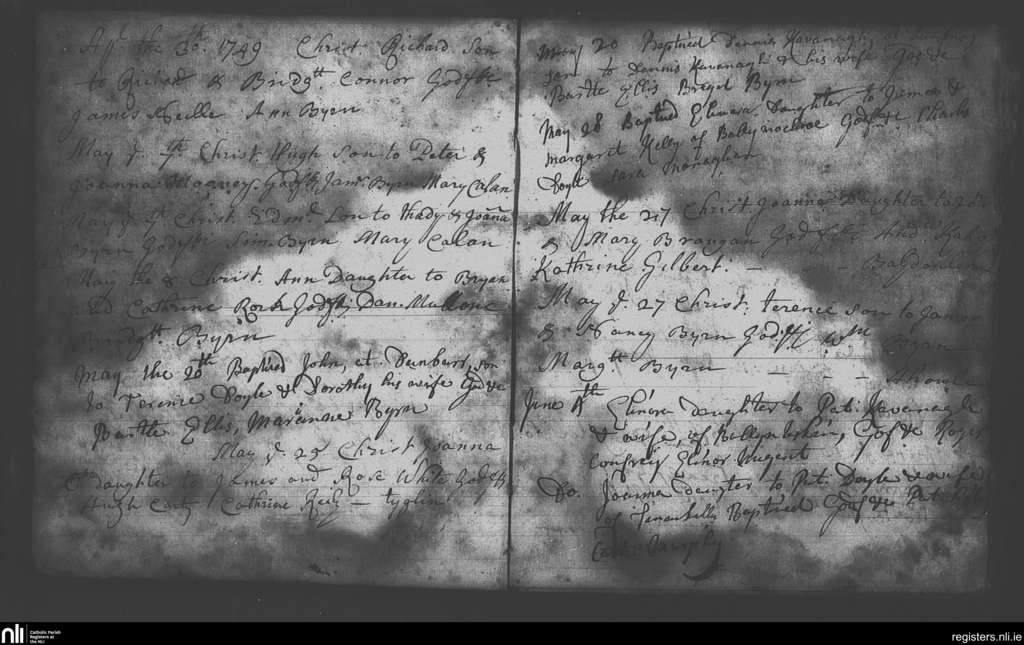 Apl. the 30th. 1749 Christ. Richard Son
to Richard & Bridgtt. Connor Godfrs
James Neille Ann Byrn
May ye. 7th. Christ. Hugh Son to Peter &
Joanna Godfrs Jams. Byrn Mary Calan
May ye 7th Christ. Edmd. Son to thady & Joanna
Byrn Godfrs Sim. Byrn Mary Calan
May the 8 Christ. Ann Daughter to Bryan
and Cathrine Rork Godfrs Dan. Mullone
Bridgtt. Byrn
May the 20th Baptied John, at Dunburd, son
to Terence Doyle & Dorothy his wife Godfs
Bartle Ellis, Marianne Byrn
May ye 25 Christ Joanna
Daughter to James and Rose White Godfrs
Hugh Carty Cathrine Reily
May 20 Baptied Dennis Kavanagh
son to Dennis Kavanagh & his wife Gos
Bartle Ellis Briget Byrn
May 28 Baptied Elinora Daughter to James &
margaret Kelly of Gosfs Charls
Doyle Sara Monaghan
May the 27 Christ. Joanna Daughter to
& Mary Brangan Godfrs
Kathrine Gilbert.
May ye. 27 Christ. terence son to James
& Nancy Byrn Godfrs Wm Byrn
Margtt. Byrn
June Elinora daughter to Pat. Kavanagh
& wife, of Gosfs Roger
Confrey Elinor Nugent
Do. Joanna daughter to Pat. Doyle & wife
of Baptied Gosfs Pat
Cath. Murphy
nli
Catholic Parish
Registers at
the NLI
registers.nli.ie